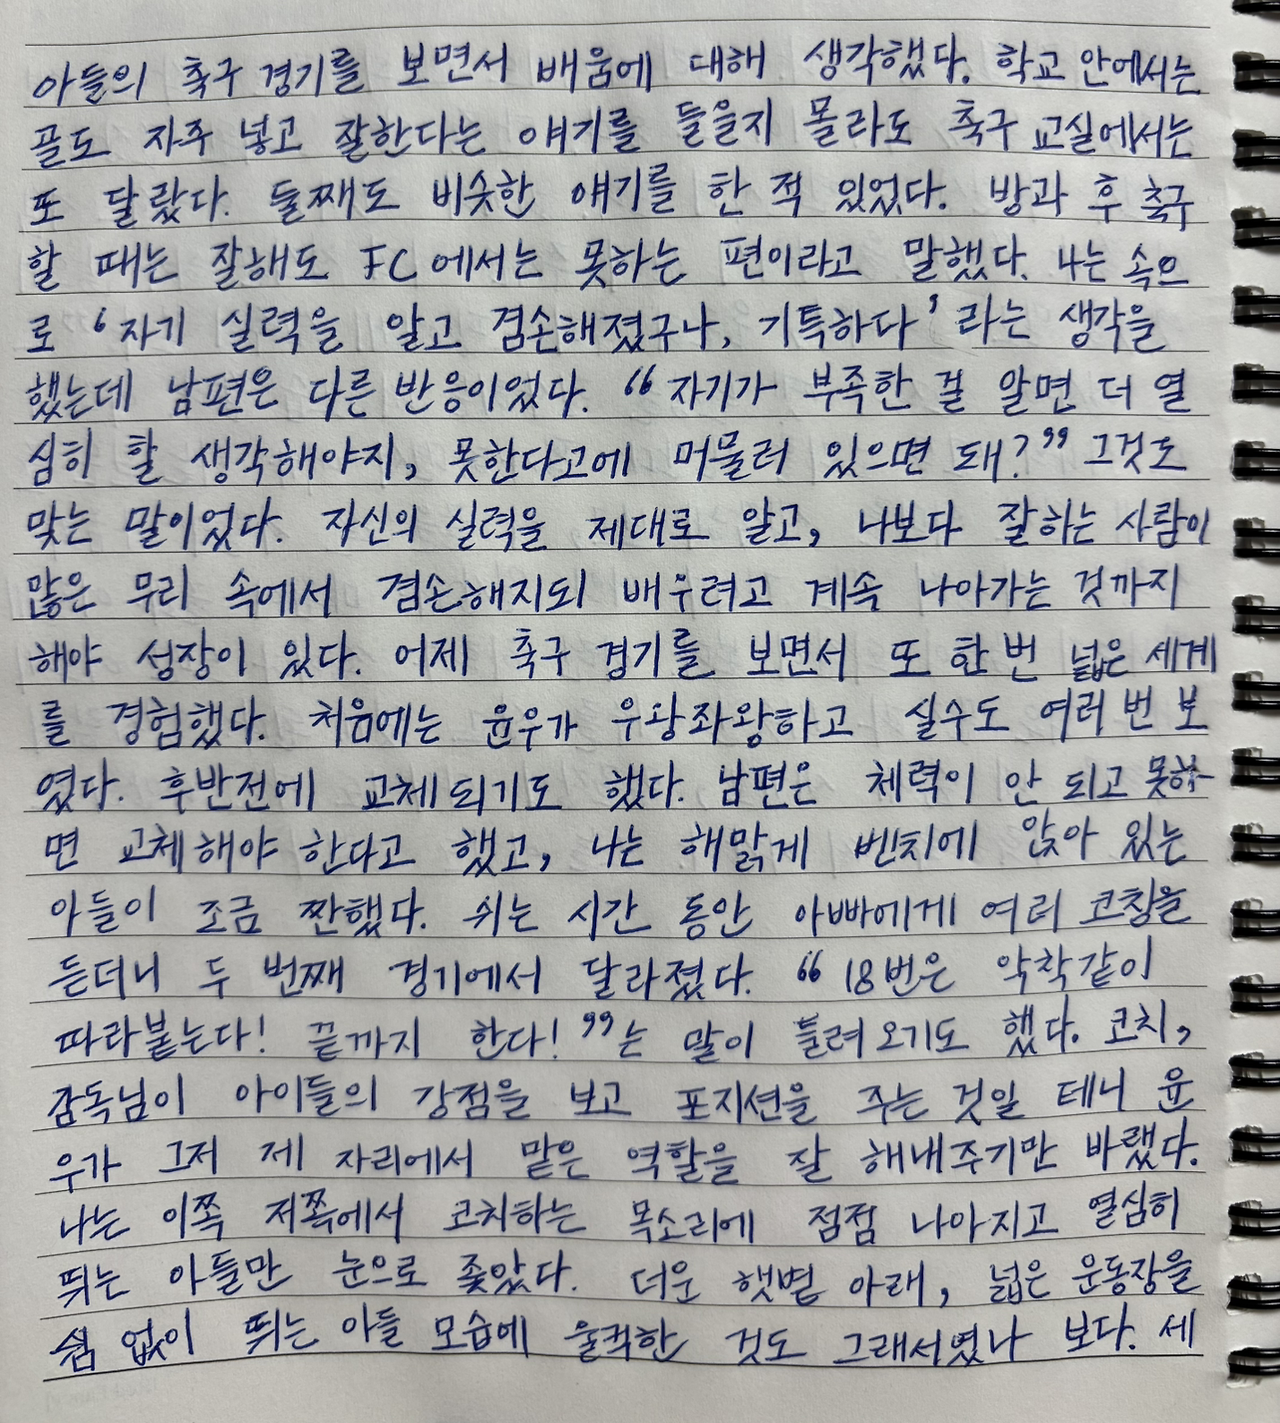 아들의 축구 경기를 보면서 배움에 대해 생각했다. 학교 안에서는
골도 자주 넣고 잘한다는 얘기를 들을지 몰라도 축구 교실에서는
또 달랐다. 둘째도 비슷한 얘기를 한 적 있었다. 방과 후 축구
할 때는 잘해도 FC에서는 못하는 편이라고 말했다. 나는 속으
로 '자기 실력을 알고 겸손해졌구나, 기특하다' 라는 생각을
했는데 남편은 다른 반응이었다. "자기가 부족한 걸 알면 더 열
심히 할 생각해야지, 못한다고에 머물러 있으면 돼?" 그것도
맞는 말이었다. 자신의 실력을 제대로 알고, 나보다 잘하는 사람이
많은 무리 속에서 겸손해지되 배우려고 계속 나아가는 것까지
해야 성장이 있다. 어제 축구 경기를 보면서 또 한 번 넓은 세계
를 경험했다. 처음에는 윤우가 우왕좌왕하고 실수도 여러 번 보
였다. 후반전에 교체되기도 했다. 남편은 체력이 안 되고 못하
면 교체해야 한다고 했고, 나는 해맑게 벤치에 앉아 있는
아들이 조금 짠했다. 쉬는 시간 동안 아빠에게 여러 코칭을
듣더니 두 번째 경기에서 달라졌다. "18번은 악착같이
따라붙는다! 끝까지 한다!"는 말이 들려오기도 했다. 코치,
감독님이 아이들의 강점을 보고 포지션을 주는 것일 테니 윤
우가 그저 제 자리에서 맡은 역할을 잘 해내주기만 바랬다.
나는 이쪽 저쪽에서 코치하는 목소리에 점점 나아지고 열심히
뛰는 아들만 눈으로 좇았다. 더운 햇볕 아래, 넓은 운동장을
쉼 없이 뛰는 아들 모습에 울컥한 것도 그래서였나 보다. 세